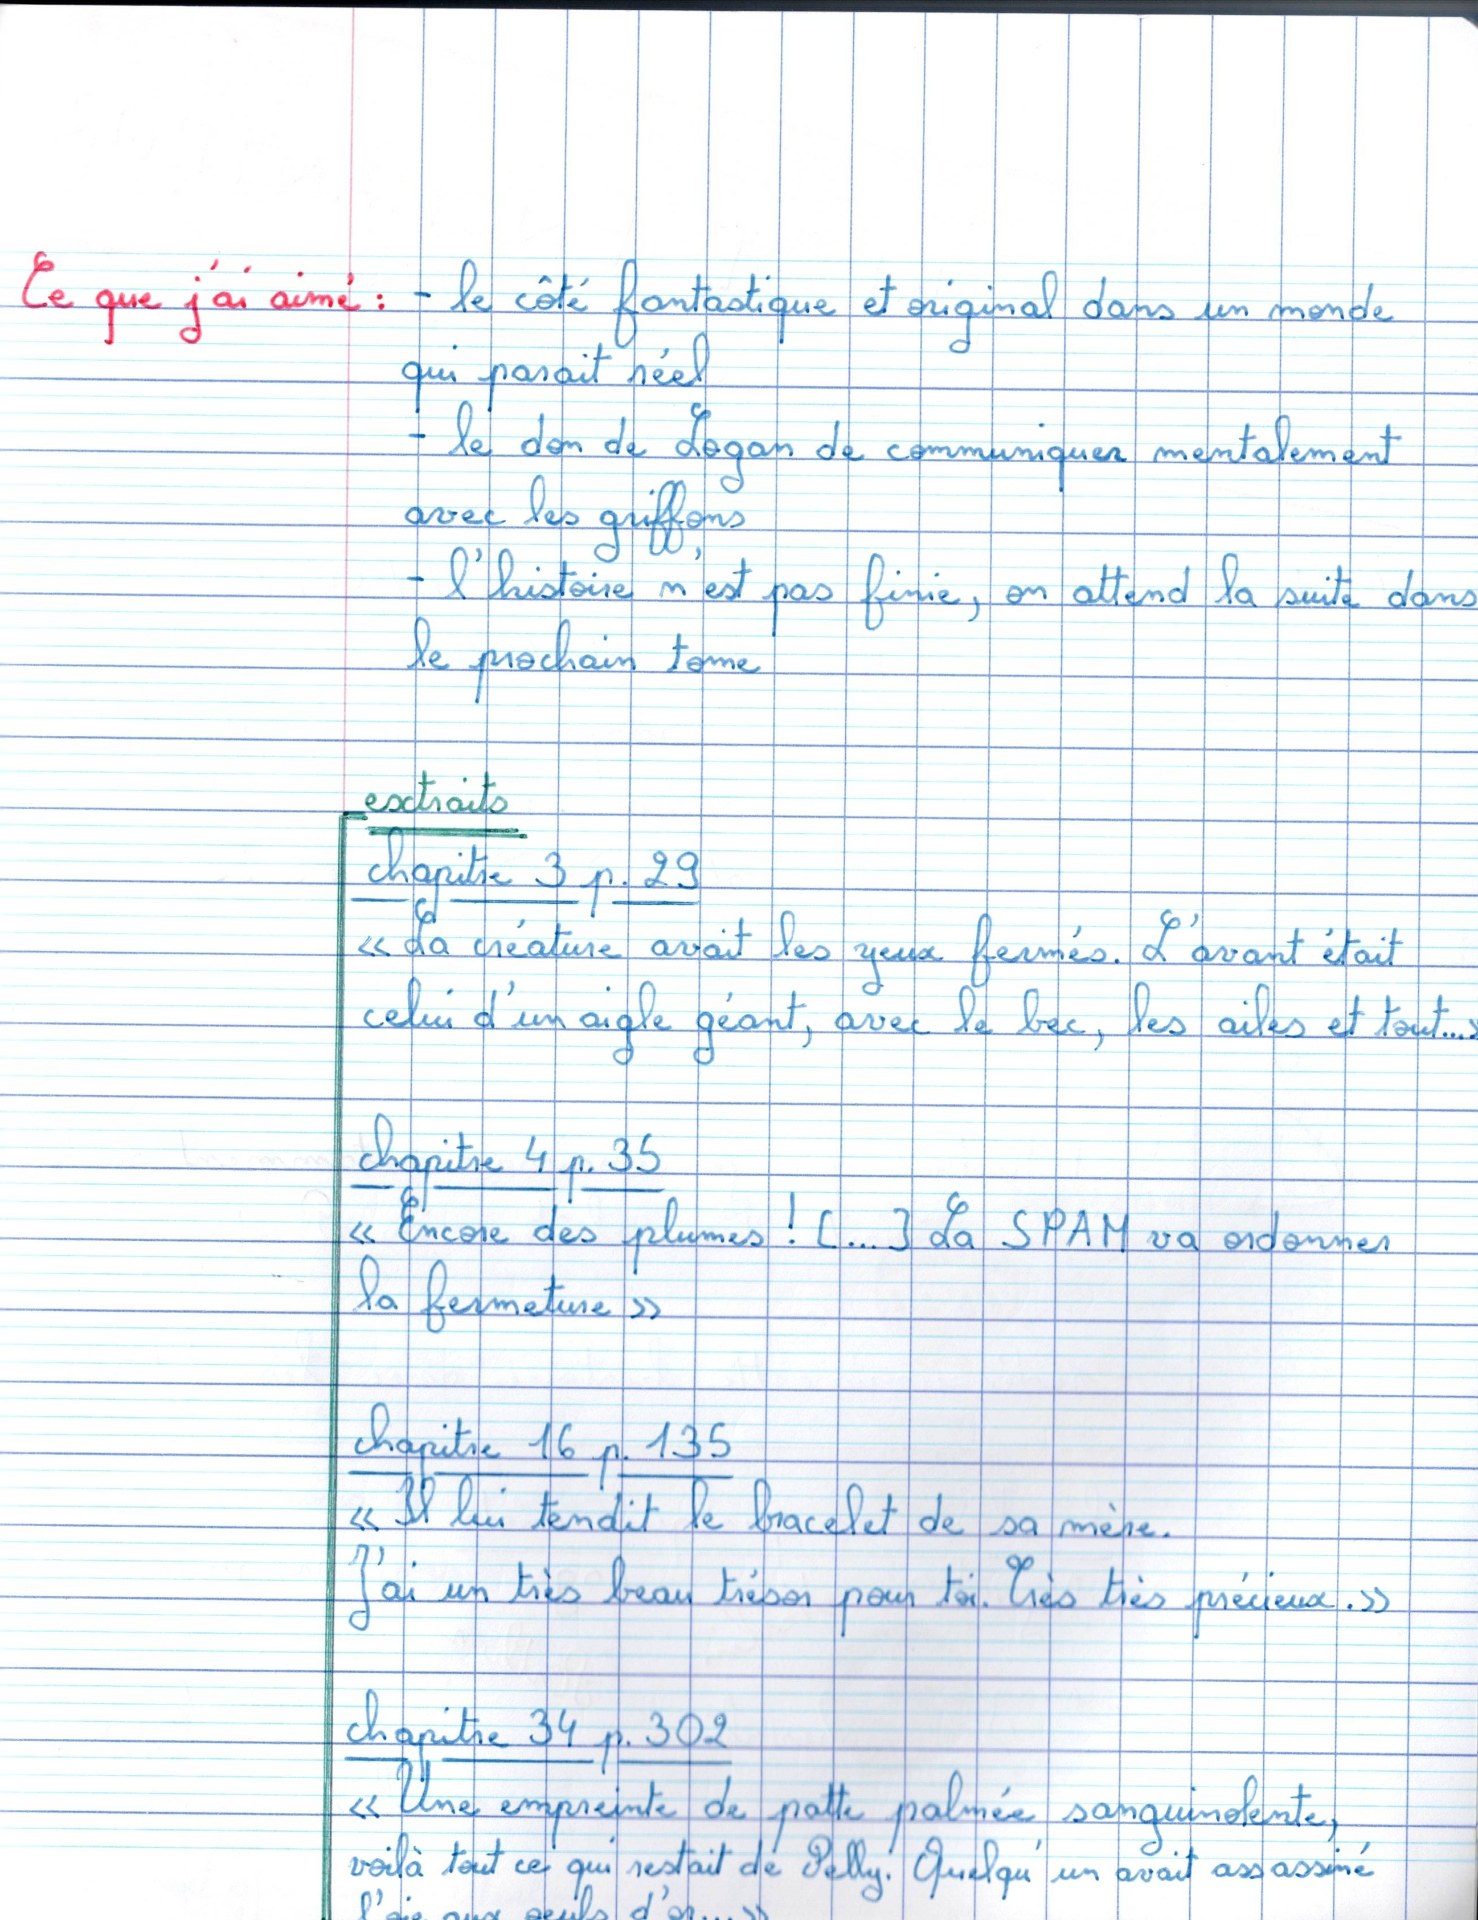 Ce que j'ai aimé : - le côté fantastique et original dans un monde
qui parait réel
- le don de Logan de communiquer mentalement
avec les griffons
- l'histoire n'est pas finie, on attend la suite dans
le prochain tome
extraits
chapitre 3 p. 29
« La créature avait les yeux fermés. L'avant était
celui d'un aigle géant, avec le bec, les ailes et tout...»
chapitre 4 p. 35
« Encore des plumes ! [...] La SPAM va ordonner
la fermeture »
chapitre 16 p. 135
« Il lui tendit le bracelet de sa mère.
J'ai un très beau trésor pour toi. Très très précieux. »
chapitre 34 p. 302
« Une empreinte de patte palmée sanguinolente,
voilà tout ce qui restait de Pelly. Quelqu'un avait assassiné
l'oie aux oeufs d'or... »